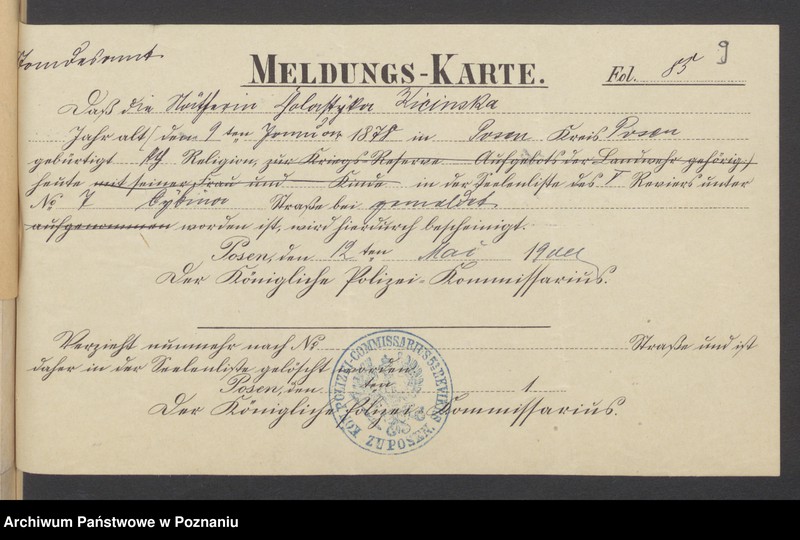 Standesamt
9
MELDUNGS-KARTE.
Fol. 85
Daß die Näherin Skolastyka Zicinska
Jahr alt, dem 9 ten Januar 1878 in Posen Kreis Posen
gebürtigt Religion, zur Kriegs-Reserve Aufgebots der Landwehr gehörig,
heute mit seiner Frau und Kinde in der Seelenliste des V Reviers unter
No 7 Cybina Straße bei gemeldet
aufgenommen worden ist, wird hierdurch bescheinigt.
Posen, den 12 ten Mai 19
Der Königliche Polizei-Kommissarius.
Verzieht nunmehr nach No Straße und ist
daher in der Seelenliste gelöscht worden.
Posen, den ten 1
Der Königliche Polizei-Kommissarius.
KÖN. POLIZEI-COMMISSARIUS 5. REVIERS
ZU POSEN.
Archiwum Państwowe w Poznaniu